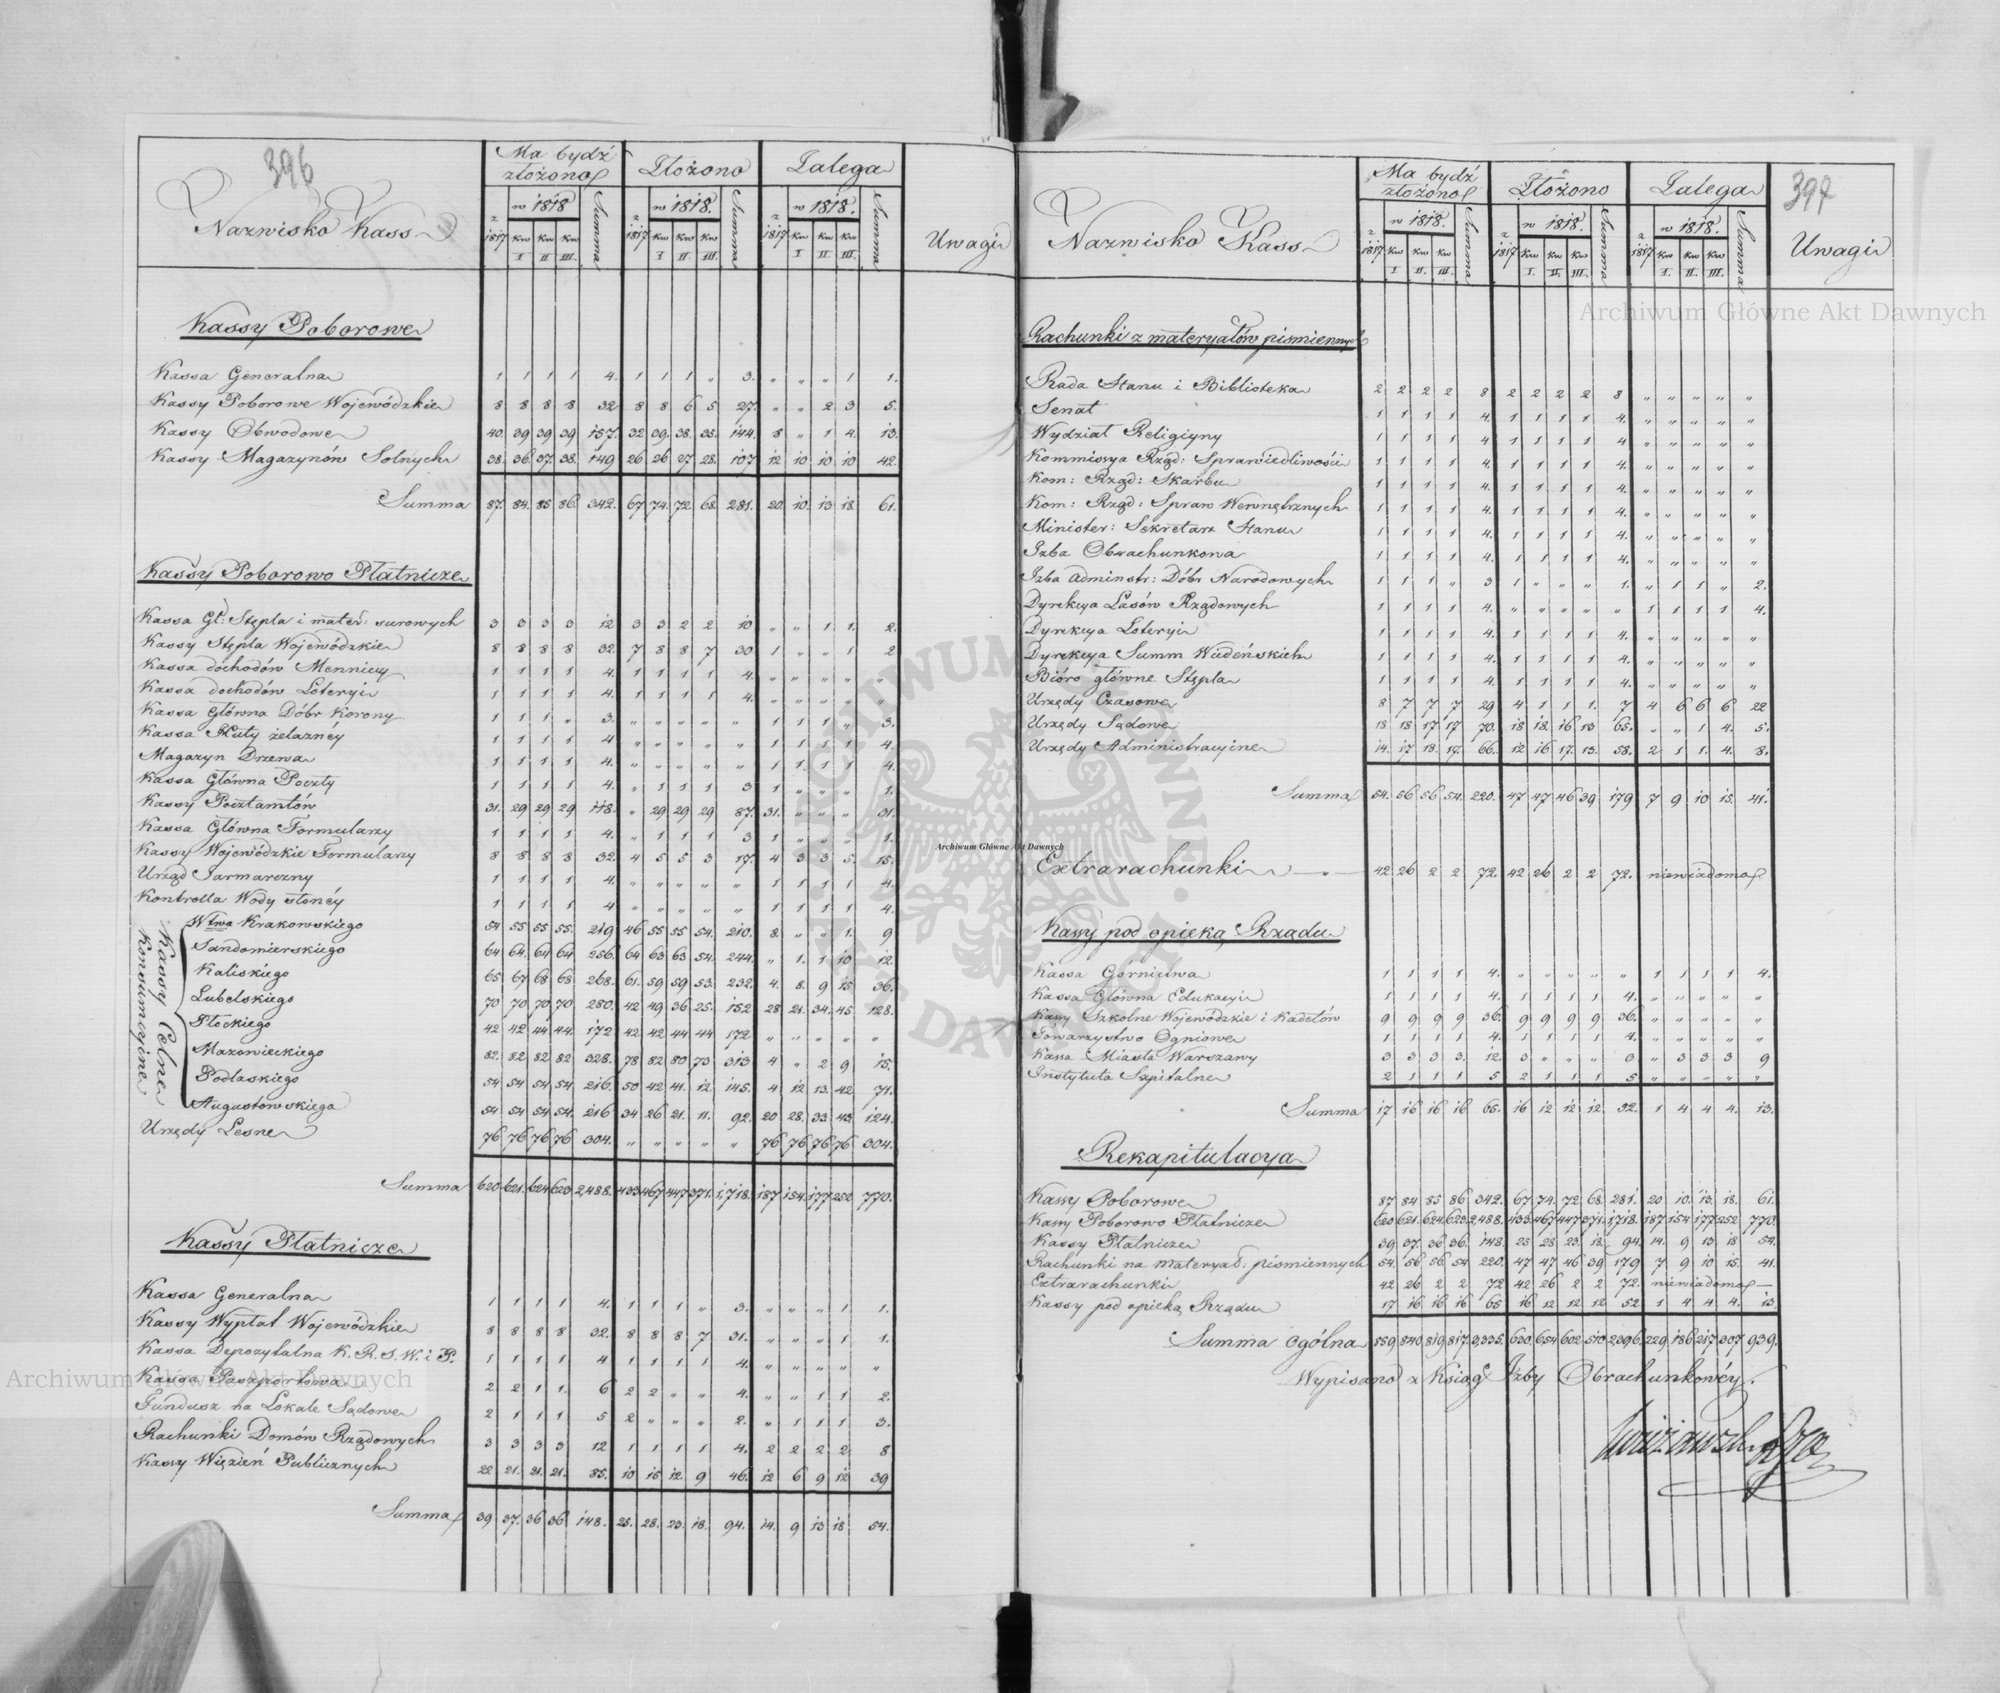 396
Nazwisko Kass
Ma bydź złożono
Złożono
Zalega
Uwagi
z 1817 w 1818 Kw I Kw II Kw III. Summa z 1817 w 1818. Kw I Kw II. Kw III. Summa z 1817 w 1818. Kw I Kw II. Kw III. Summa
Kassy Poborowe
Kassa Generalna 1 1 1 1 4. 1 1 1 „ 3. „ „ „ 1 1.
Kassy Poborowe Wojewódzkie 8 8 8 8 32 8 8 6 5 27. „ „ 2 3 5.
Kassy Obwodowe 40. 39 39 39 157. 32 39. 38. 35. 144. 8 „ 1 4. 13.
Kassy Magazynów Solnych 38. 36. 37. 38. 149 26 26 27 28. 107 12 10 10 10 42.
Summa 87. 84. 85 86. 342. 67 74. 72. 68. 281. 20. 10. 13 18. 61.
Kassy Poborowo Płatnicze
Kassa Gł: Stępla i mater: surowych 3 3 3 3 12 3 3 2 2 10 „ „ 1 1. 2.
Kassy Stępla Wojewódzkie 8 8 8 8 32. 7 8 8 7 30 1 „ „ 1 2
Kassa dochodów Mennicy 1 1 1 1 4. 1 1 1 1 4. „ „ „ „ „
Kassa dochodów Loteryi 1 1 1 1 4. 1 1 1 1 4. „ „ „ „ „
Kassa Główna Dóbr Korony 1 1 1 „ 3. „ „ „ „ „ 1 1 1 „ 3.
Kassa Huty żelaznéy 1 1 1 1 4 „ „ „ „ „ 1 1 1 1 4.
Magazyn Drzewa 1 1 1 1 4. „ „ „ „ „ 1 1. 1 1 4.
Kassa Główna Poczty 1 1 1 1 4. „ 1 1 1 3 1 „ „ „ 1.
Kassy Pocztamtów 31. 29 29 29 118. „ 29 29 29 87. 31. „ „ „ 31.
Kassa Główna Formularzy 1 1 1 1 4. „ 1 1 1 3 1 „ „ „ 1.
Kassy Wojewódzkie Formularzy 8 8 8 8 32. 4 5 5 3 17. 4 3 3 5. 15.
Urząd Jarmarczny 1 1 1 1 4. „ „ „ „ „ 1 1 1 1 4.
Kontrolla Wody słonéy 1 1 1 1 4 „ „ „ „ „ 1 1 1 1 4.
Kassy Celne Konsumcyjne
Wtwa Krakowskiego 54 55 55 55. 219 46 55 55 54. 210. 8. „ „ 1. 9
Sandomierskiego 64 64. 64 64 256. 64 63 63 54. 244. „ 1. 1 10 12.
Kaliskiego 65 67 68 68 268. 61. 59 59 53. 232. 4. 8. 9 15 36.
Lubelskiego 70 70 70 70 280. 42 49 36 25. 152 28 21. 34. 45. 128.
Płockiego 42 42 44 44. 172 42 42 44 44 172 „ „ „ „ „
Mazowieckiego 82. 82 82 82 328. 78 82 80 73 313 4 „ 2 9 15.
Podlaskiego 54 54 54 54 216. 50 42 41. 12 145. 4 12 13. 42 71.
Augustowskiego 54 54 54 54. 216 34 26 21. 11. 92. 20 28. 33. 43 124.
Urzędy Leśne 76 76 76 76 304. „ „ „ „ „ 76 76 76 76 304.
Summa 620. 621. 624 623 2,488. 433 467 447 371. 1,718. 187 154. 177 252 770.
Kassy Płatnicze
Kassa Generalna 1 1 1 1 4. 1 1 1 „ 3. „ „ „ 1 1.
Kassy Wypłat Wojewódzkie 8 8 8 8 32. 8 8 8 7 31. „ „ „ 1 1.
Kassa Depozytalna K. R. S. W. i P. 1 1 1 1 4 1 1 1 1 4. „ „ „ „ „
Kassa Paszportowa 2 2 1 1. 6 2 2 „ „ 4. „ „ 1 1 2.
Fundusz na Lokale Sądowe 2 1 1 1 5 2 „ „ „ 2. „ 1 1 1 3.
Rachunki Domów Rządowych 3 3 3 3 12 1 1 1 1 4. 2 2 2 2 8
Kassy Więzień Publicznych 22 21. 21. 21. 85. 10 15 12. 9 46. 12 6 9 12 39
Summa 39 37. 36 36 148. 25. 28. 23. 18. 94. 14. 9 13 18 54.
397
Nazwisko Kass
Ma bydź złożono
Złożono
Zalega
Uwagi
z 1817 w 1818. Kw I. Kw II. Kw III. Summa z 1817 w 1818. Kw I. Kw II. Kw III. Summa z 1817 w 1818. Kw I. Kw II. Kw III. Summa
Rachunki z materyałów pismiennych
Rada Stanu i Biblioteka 2 2 2 2 8 2 2 2 2 8 „ „ „ „ „
Senat 1 1 1 1 4. 1 1 1 1 4. „ „ „ „ „
Wydział Religiyny 1 1 1 1 4 1 1 1 1 4 „ „ „ „ „
Kommissya Rząd: Sprawiedliwości 1 1 1 1 4. 1 1 1 1 4. „ „ „ „ „
Kom: Rząd: Skarbu 1 1 1 1 4. 1 1 1 1 4. „ „ „ „ „
Kom: Rząd: Spraw Wewnętrznych 1 1 1 1 4. 1 1 1 1 4. „ „ „ „ „
Minister: Sekretarz Stanu 1 1 1 1 4. 1 1 1 1 4. „ „ „ „ „
Izba Obrachunkowa 1 1 1 1 4. 1 1 1 1 4. „ „ „ „ „
Izba Adminstr: Dóbr Narodowych 1 1 1 „ 3 1 „ „ „ 1. „ 1 1 „ 2.
Dyrekcya Lasów Rządowych 1 1 1 1 4. „ „ „ „ „ 1 1 1 1 4.
Dyrekcya Loteryi 1 1 1 1 4. 1 1 1 1 4. „ „ „ „ „
Dyrekcya Summ Wiedeńskich 1 1 1 1 4. 1 1 1 1 4. „ „ „ „ „
Bióro główne Stępla 1 1 1 1 4. 1 1 1 1 4. „ „ „ „ „
Urzędy Czasowe 8 7 7 7 29 4 1 1 1. 7 4 6 6 6 22
Urzędy Sądowe 18 18 17 17 70. 18 18. 16 13 65. „ „ 1 4. 5.
Urzędy Administracyine 14. 17 18. 17. 66. 12 16 17. 13. 58. 2 1 1. 4. 8.
Summa 54. 56 56 54. 220. 47 47 46 39 179 7 9 10 15. 41.
Extrarachunki 42 26 2 2 72. 42 26 2 2 72. niewiadomo
Kassy pod opieką Rządu
Kassa Gornictwa 1 1 1 1 4. „ „ „ „ „ 1 1 1 1 4.
Kassa Główna Edukacyi 1 1 1 1 4. 1 1 1 1 4. „ „ „ „ „
Kassy Szkolne Wojewódzkie i Kadetów 9 9 9 9 36. 9 9 9 9 36. „ „ „ „ „
Towarzystwo Ogniowe 1 1 1 1 4. 1 1 1 1 4. „ „ „ „ „
Kassa Miasta Warszawy 3 3 3 3. 12. 3 „ „ „ 3 „ 3 3 3 9
Instytuta Szpitalne 2 1 1 1 5 2 1 1 1 5 „ „ „ „ „
Summa 17 16 16 16 65. 16 12 12 12. 52. 1 4 4 4. 13.
Rekapitulacya
Kassy Poborowe 87 84 85 86 342. 67 74. 72 68. 281. 20 10. 13. 18. 61.
Kassy Poborowo Płatnicze 620 621. 624. 623. 2,488. 433. 467 447 371. 1718. 187 154 177 252. 770.
Kassy Płatnicze 39 37. 36 36. 148. 25 28 23. 18. 94. 14. 9 13 18 54.
Rachunki na materyał: pismiennych 54. 56 56 54 220. 47 47 46 39 179 7 9 10 15. 41.
Extrarachunki 42 26 2 2. 72 42 26 2 2 72. niewiadomo
Kassy pod opieką Rządu 17 16 16 16 65 16 12 12 12 52 1 4 4 4. 13
Summa ogólna 859 840 819 817. 3,335. 630. 654 602. 510 2,396. 229. 186 217 307 939.
Wypisano z Ksiąg Izby Obrachunkowéy.
Archiwum Główne Akt Dawnych
Archiwum Główne Akt Dawnych
Archiwum Główne Akt Dawnych
ARCHIWUM GŁÓWNE AKT DAWNYCH